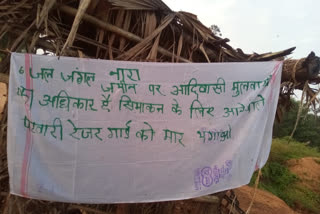 जल जंगल नारा
जमीन पर आदिवासी मुलवासी
का अधिकार है, सिमाकन के लिए आनेवाले
पटवारी रेंजर गार्ड को मार भगाओ